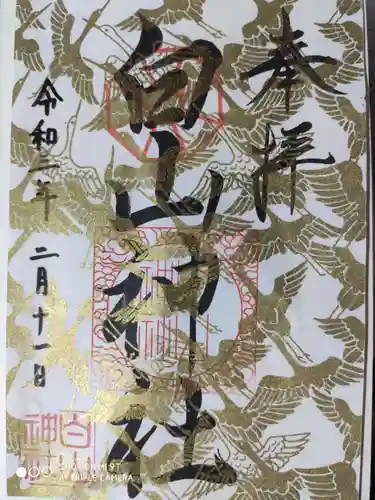 奉拝
白山神社
令和二年
二月十一日
白
神
SHOT ON MI 9T
AI TRIPLE CAMERA